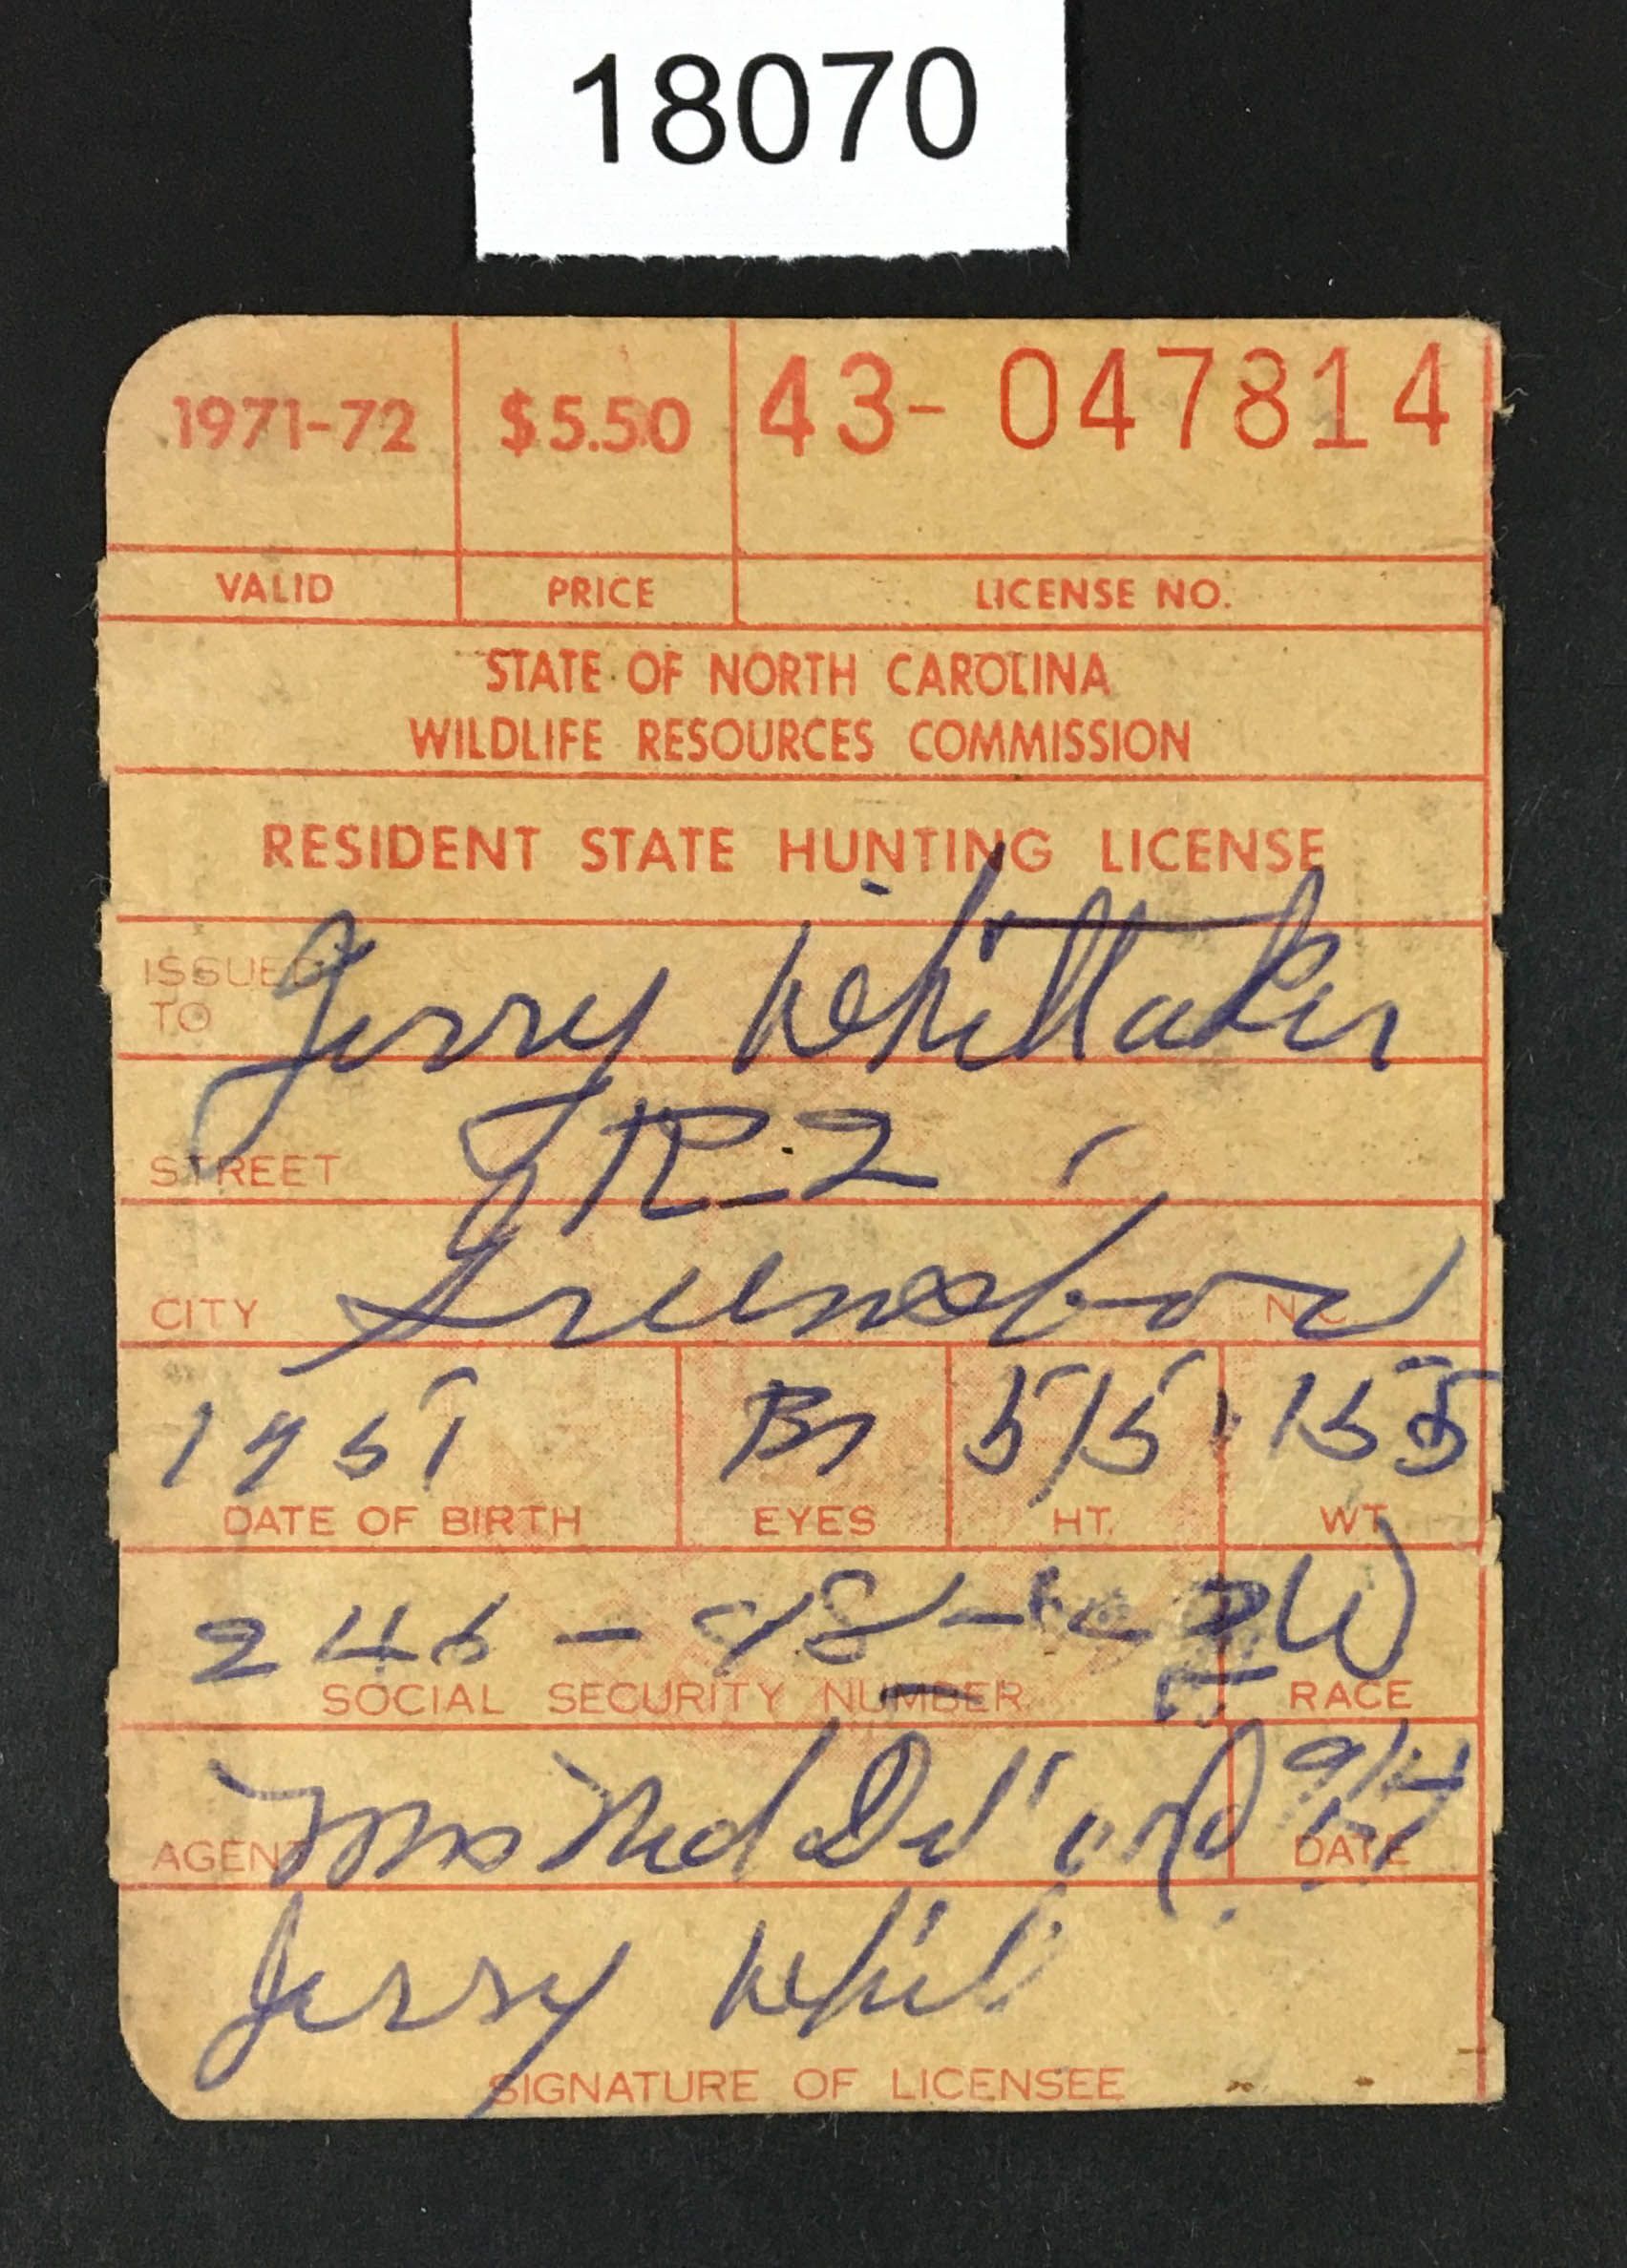 18070
1971-72 $5.50 43-047814
VALID PRICE LICENSE NO.
STATE OF NORTH CAROLINA
WILDLIFE RESOURCES COMMISSION
RESIDENT STATE HUNTING LICENSE
ISSUED TO Jerry Whittaker
STREET R-2
CITY Greensboro N.C.
1951 Br 5/5 155
DATE OF BIRTH EYES HT. WT.
W
SOCIAL SECURITY NUMBER RACE
AGENT DATE
Jerry Whit
SIGNATURE OF LICENSEE